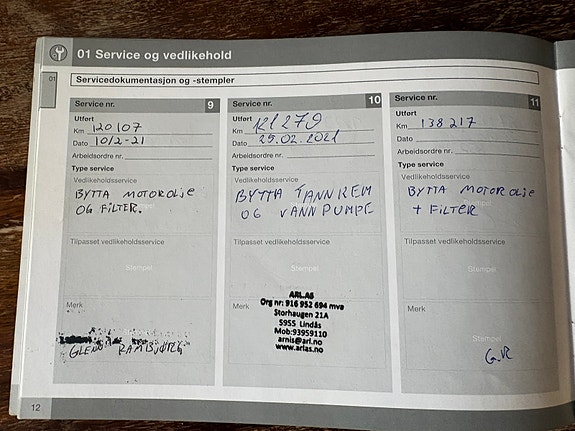 01 Service og vedlikehold
01
Servicedokumentasjon og -stempler
Service nr. 9
Utført
Km 120107
Dato 10/2-21
Arbeidsordre nr.
Type service
Vedlikeholdsservice
BYTTA MOTOROLJE
OG FILTER.
Tilpasset vedlikeholdsservice
Stempel
Merk
GLENN
Service nr. 10
Utført
Km 121279
Dato 25.02.2021
Arbeidsordre nr.
Type service
Vedlikeholdsservice
BYTTA TANNREM
OG VANNPUMPE
Tilpasset vedlikeholdsservice
Stempel
Merk
ARL.AS
Org nr: 916 952 694 mva
Storhaugen 21A
5955 Lindås
Mob:93959110
arnis@arl.no
www.arlas.no
Service nr. 11
Utført
Km 138217
Dato
Arbeidsordre nr.
Type service
Vedlikeholdsservice
BYTTA MOTOROLJE
+ FILTER
Tilpasset vedlikeholdsservice
Stempel
Merk
Stempel
G.R
12